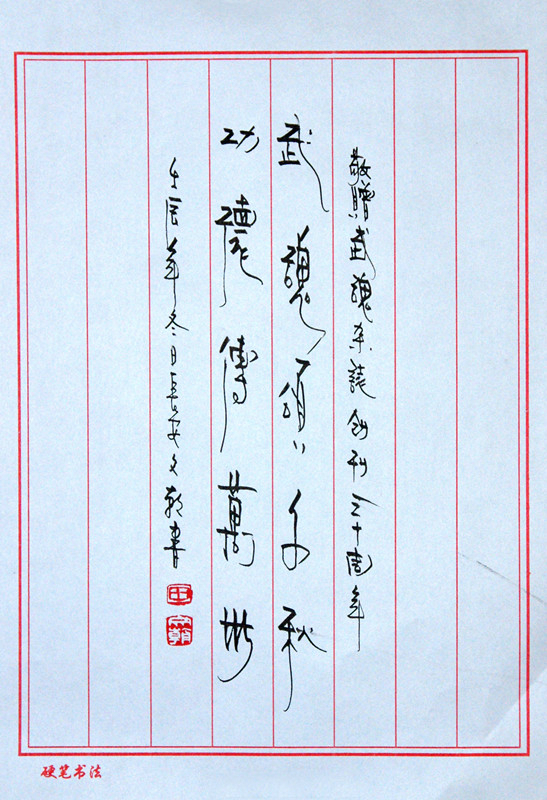 敬贈武魂杂誌創刊三十周年
武魂頌千秋
功德傳萬世
壬辰年冬日長安文朝書
硬笔书法